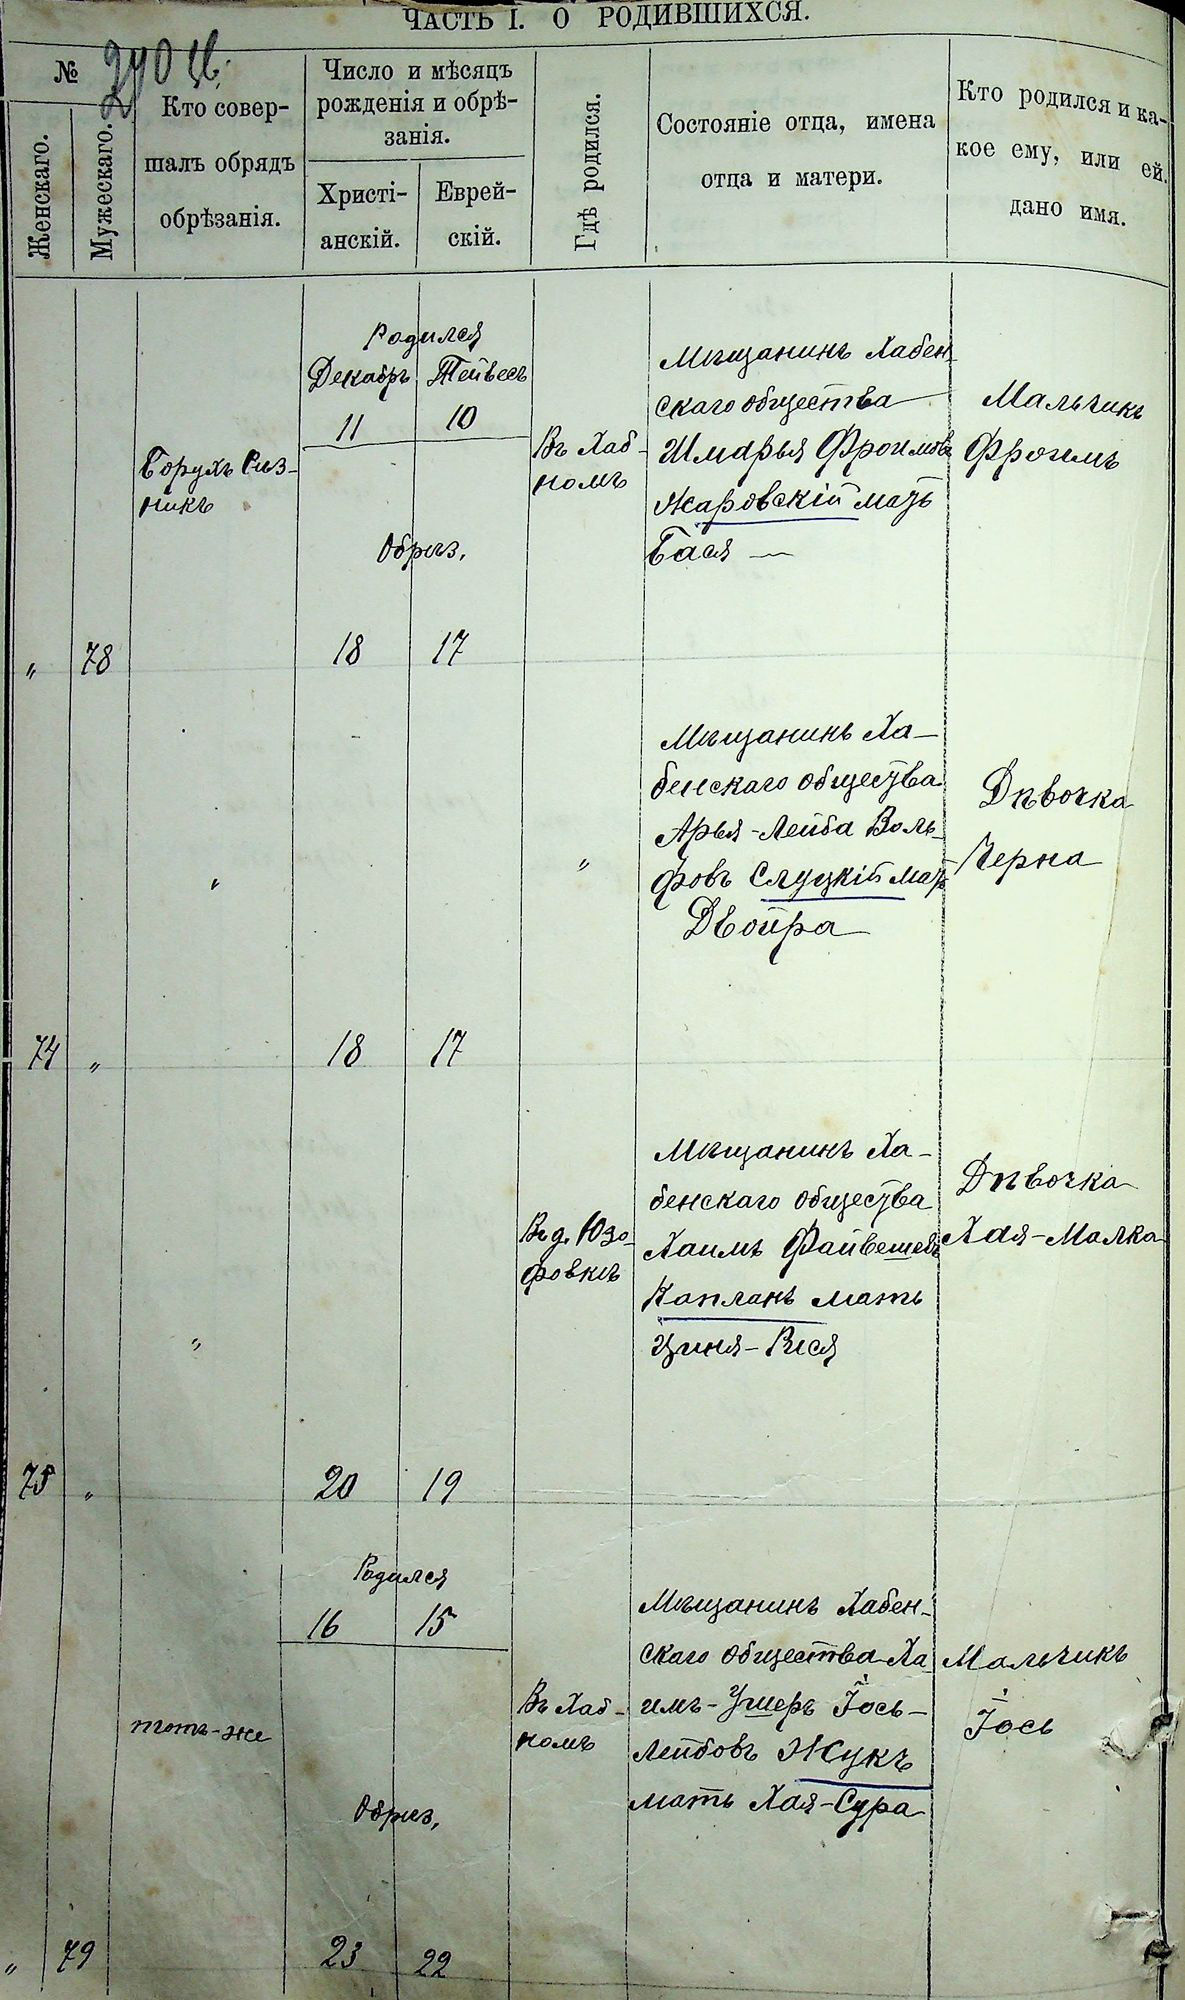 ЧАСТЬ I. О РОДИВШИХСЯ.
№
Женскаго.
Мужескаго.
Кто совер-
шалъ обрядъ
обрѣзанія.
Число и мѣсяцъ
рожденія и обрѣ-
занія.
Христі-
анскій.
Еврей-
скій.
Гдѣ родился.
Состояніе отца, имена
отца и матери.
Кто родился и ка-
кое ему, или ей
дано имя.
„
78
Борухъ Риз-
никъ
Родился
Декабрь Тейвесъ
11 10
Обрѣз.
18 17
Въ Хаб-
номъ
Мѣщанинъ Хабен-
скаго общества
Шмарья Фроимовъ
Жаровскій мать
Бася —
Мальчикъ
Фроимъ
74
„
„
18 17
„
Мѣщанинъ Ха-
бенскаго общества
Арья-Лейба Воль-
фовъ Слуцкій мать
Двойра
Дѣвочка
Черна
75
„
„
20 19
Въ д. Юзе-
фовкѣ
Мѣщанинъ Ха-
бенскаго общества
Хаимъ Файвешевъ
Капланъ мать
Циня-Рися
Дѣвочка
Хая-Малка
„
79
тотъ-же
Родился
16 15
Обрѣз.
23 22
Въ Хаб-
номъ
Мѣщанинъ Хабен-
скаго общества Ха
имъ-Ушеръ Іось-
Лейбовъ Жукъ
мать Хая-Сура
Мальчикъ
Іось